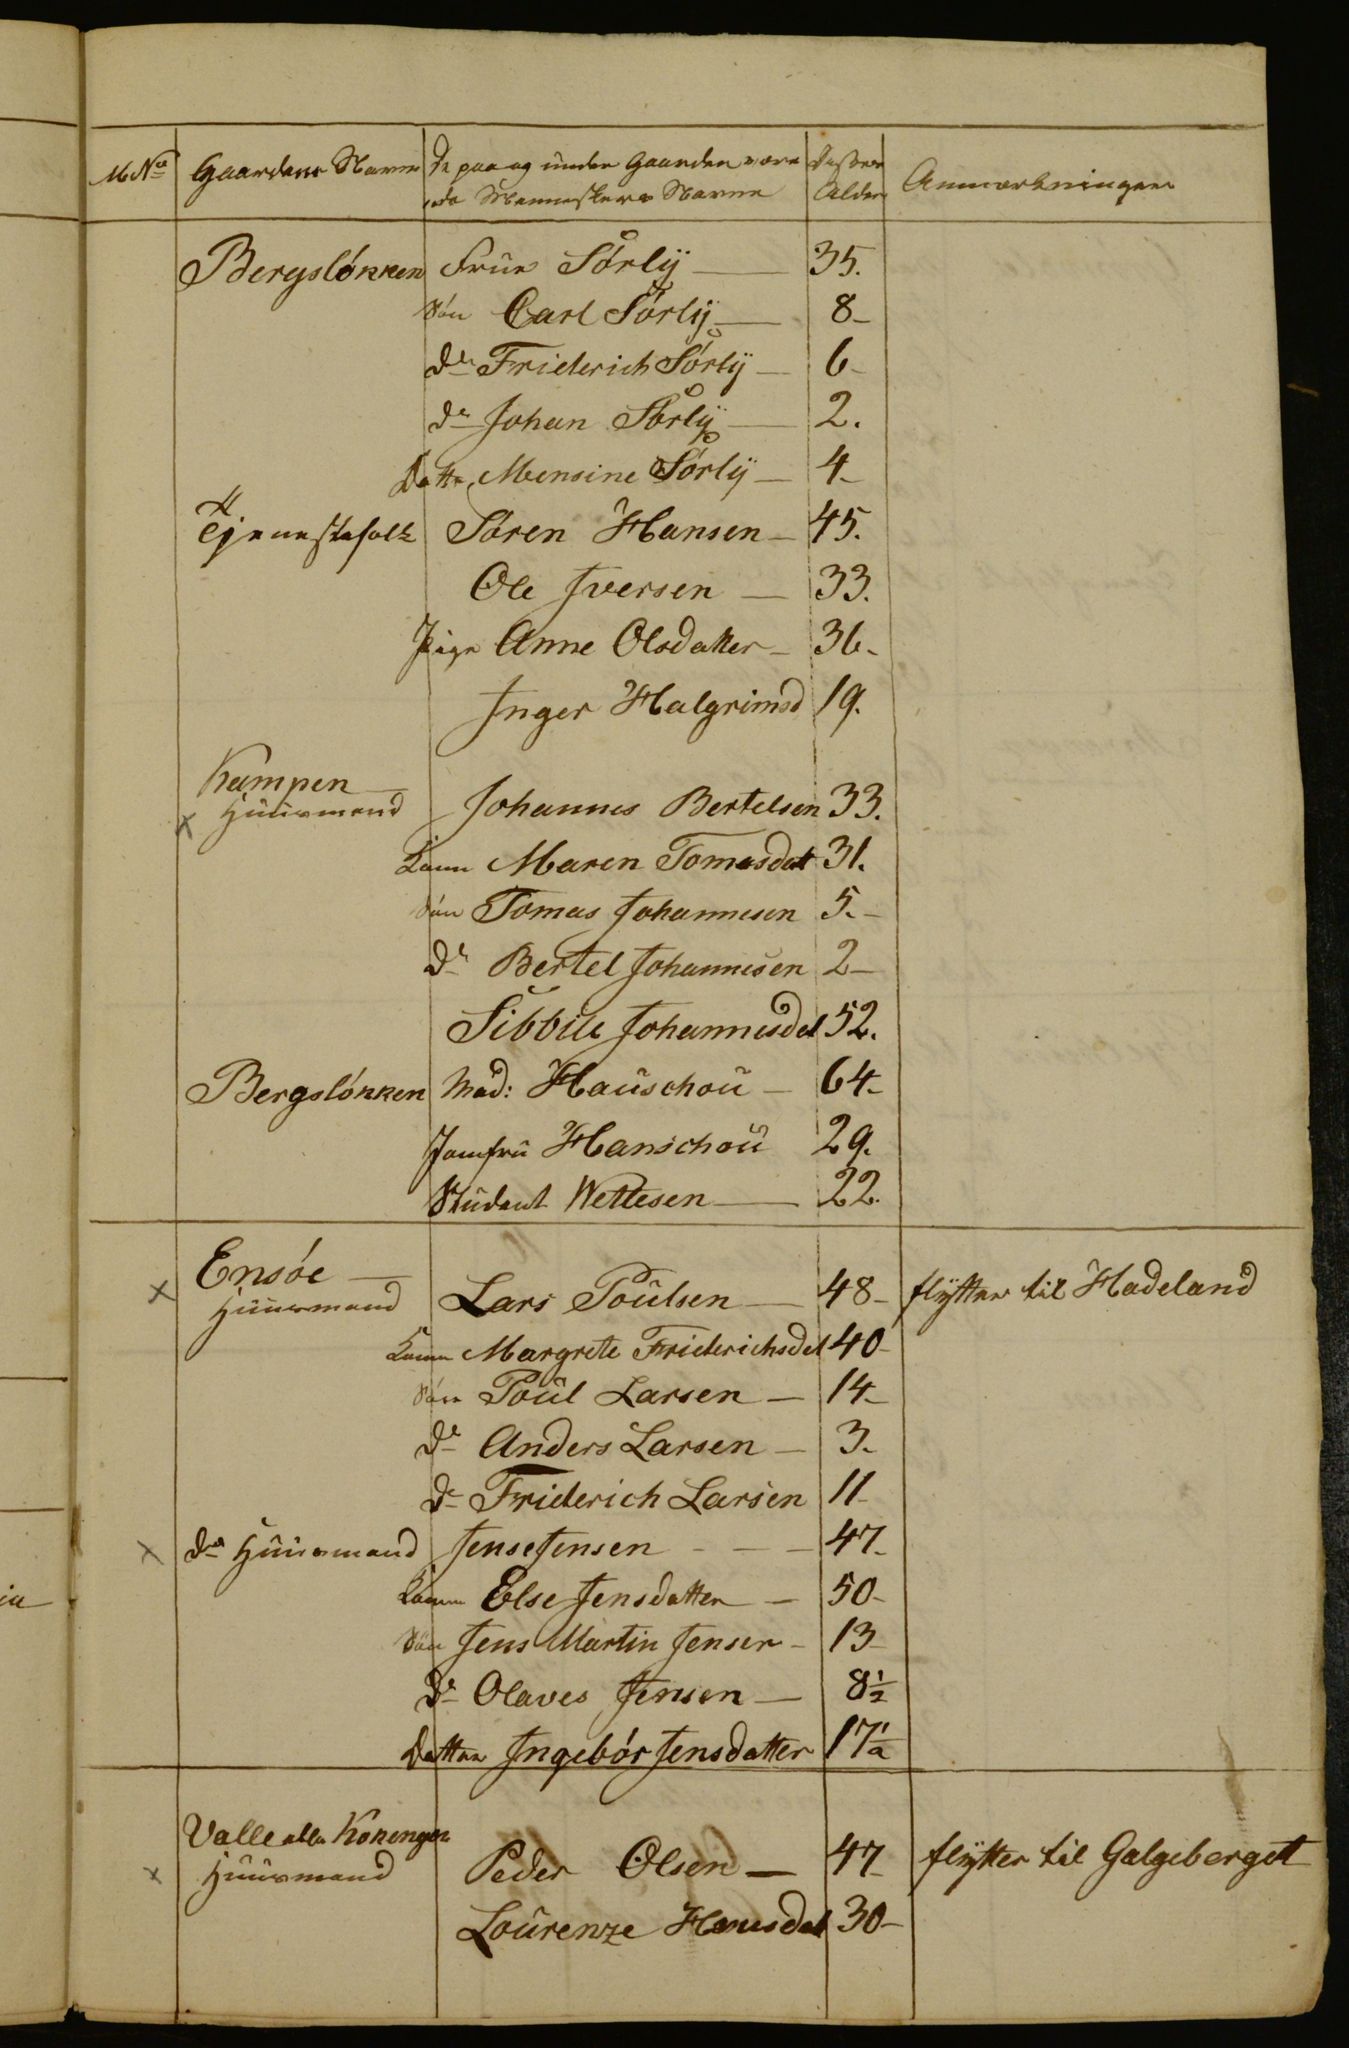 M No Gaardens Navn De paa og under Gaarden være Disses Anmærkninger
nde Menneskers Navne Alder
Bergslónken Frue Sórly 35.
Són Carl Sórly 8
Do Friderich Sórly 6
Do Johan Sórly 2.
Datter Mensine Sórly 4
Tjenestefolk Sóren Hansen 45.
Ole Iversen 33.
Pige Anne Olsdatter 36
Inger Halgrimsd 19.
Kampen
Huusmand Johannes Bertelsen 33.
Kone Maren Tomasdatt 31.
Són Tomas Johannesen 5.
Do Bertel Johannesen 2
Sibbille Johannesdat 52.
Bergslónken Mad: Hauschou 64
Jomfru Hanschou 29.
Student Wettesen 22.
x Ensóe
Huusmand Lars Poulsen 48 flytter til Hadeland
Kone Margrete Friderichsdat 40
Són Poul Larsen 14
Do Anders Larsen 3.
Do Friderich Larsen 11
x Do Huusmand Jens Jensen 47
Kone Else Jensdatter 50
Són Jens Martin Jensen 13
Do Olaves Jensen 8 1/2
Datter Ingebór Jensdatter 17 1/2
Valle eller Kokengen
x Huusmand Peder Olsen 47 flytter til Galgeberget
Lourenze Hansdat 30